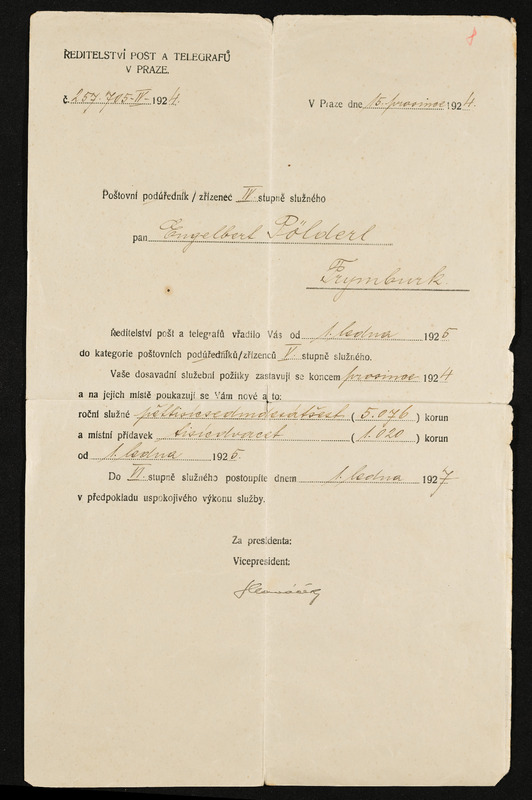 8
ŘEDITELSTVÍ POŠT A TELEGRAFŮ
V PRAZE.
č. 257.705-IV- 1924.
V Praze dne 15. prosince 1924.
Poštovní podúředník / zřízenec IV. stupně služného
pan Engelbert Pölderl
Frymburk.
Ředitelství pošt a telegrafů vřadilo Vás od 1. ledna 1925
do kategorie poštovních podúředníků/zřízenců V. stupně služného.
Vaše dosavadní služební požitky zastavují se koncem prosince 1924
a na jejich místě poukazují se Vám nové a to:
roční služné pěttisícsedmdesátšest ( 5.076 ) korun
a místní přídavek tisícdvacet ( 1.020 ) korun
od 1. ledna 1925.
Do VI. stupně služného postoupíte dnem 1. ledna 1927
v předpokladu uspokojivého výkonu služby.
Za presidenta:
Vicepresident: